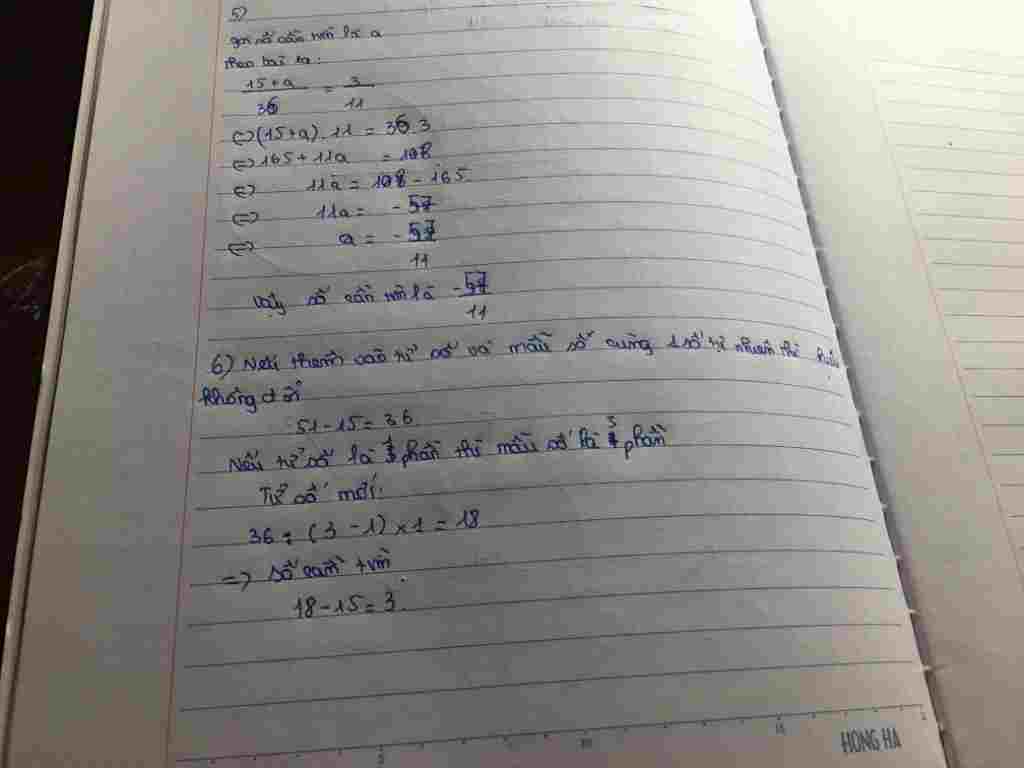 5)
gọi số cần tìm là a
theo bài ra:
15+a / 36 = 3 / 11
<=> (15+a).11 = 36.3
<=> 165+11a = 108
<=> 11a = 108-165
<=> 11a = -57
<=> a = -57 / 11
Vậy số cần tìm là -57 / 11
6) Nếu thêm vào tử số và mẫu số cùng 1 số tự nhiên thì hiệu
không đổi
51-15=36
Nếu tử số là 1 phần thì mẫu số là 3 phần
Tử số mới:
36 : (3-1) x 1 = 18
=> số cần tìm
18-15=3.
5 10 15
HONG HA